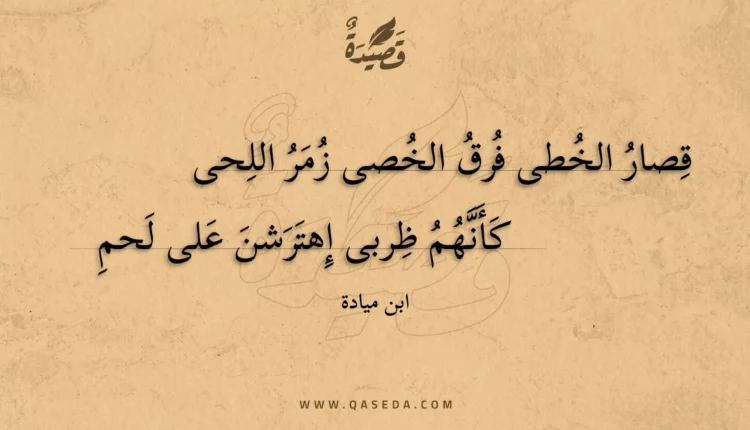 قَصِيْدَةٌ
قِصارُ الخُطى فُرقُ الخُصى زُمَرُ اللِحى
كَأَنَّهُمُ ظِربى إِهتَرَشنَ عَلى لَحمِ
ابن ميادة
WWW.QASEDA.COM